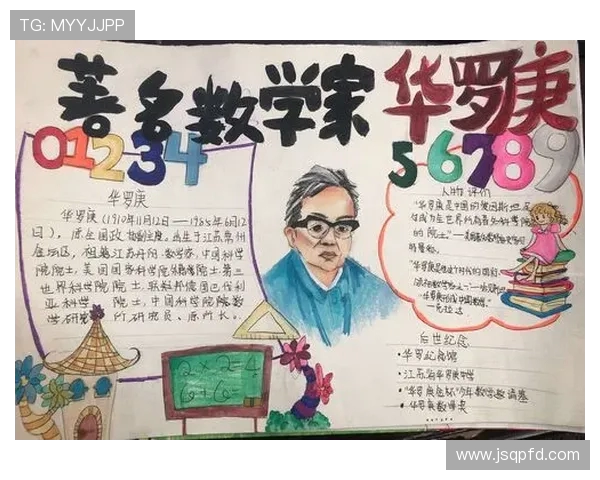 TG: MYYJJPP
著名数学家 华罗庚
01234
华罗庚
华罗庚（1910年11月12日——1985年6月12
日），
出生于江苏常州
金坛区，祖籍江苏丹阳，数学家，中国科学
院院士，美国国家科学院外籍院士，第三
世界科学院院士，联邦德国巴伐利
亚科学院院士，中国科学院数
学研究所研究员、原所长。
2×2=4
6+6=
56789
人物评价
"华罗庚是中国的爱因斯坦，足
够成为全世界所有著名科学院
的院士。"
"华罗庚
后世纪念
·华罗庚纪念馆
·江苏省华罗庚中学
·"华罗庚金杯"少年数学邀请赛
·华罗庚数学奖
www.jsqpfd.com